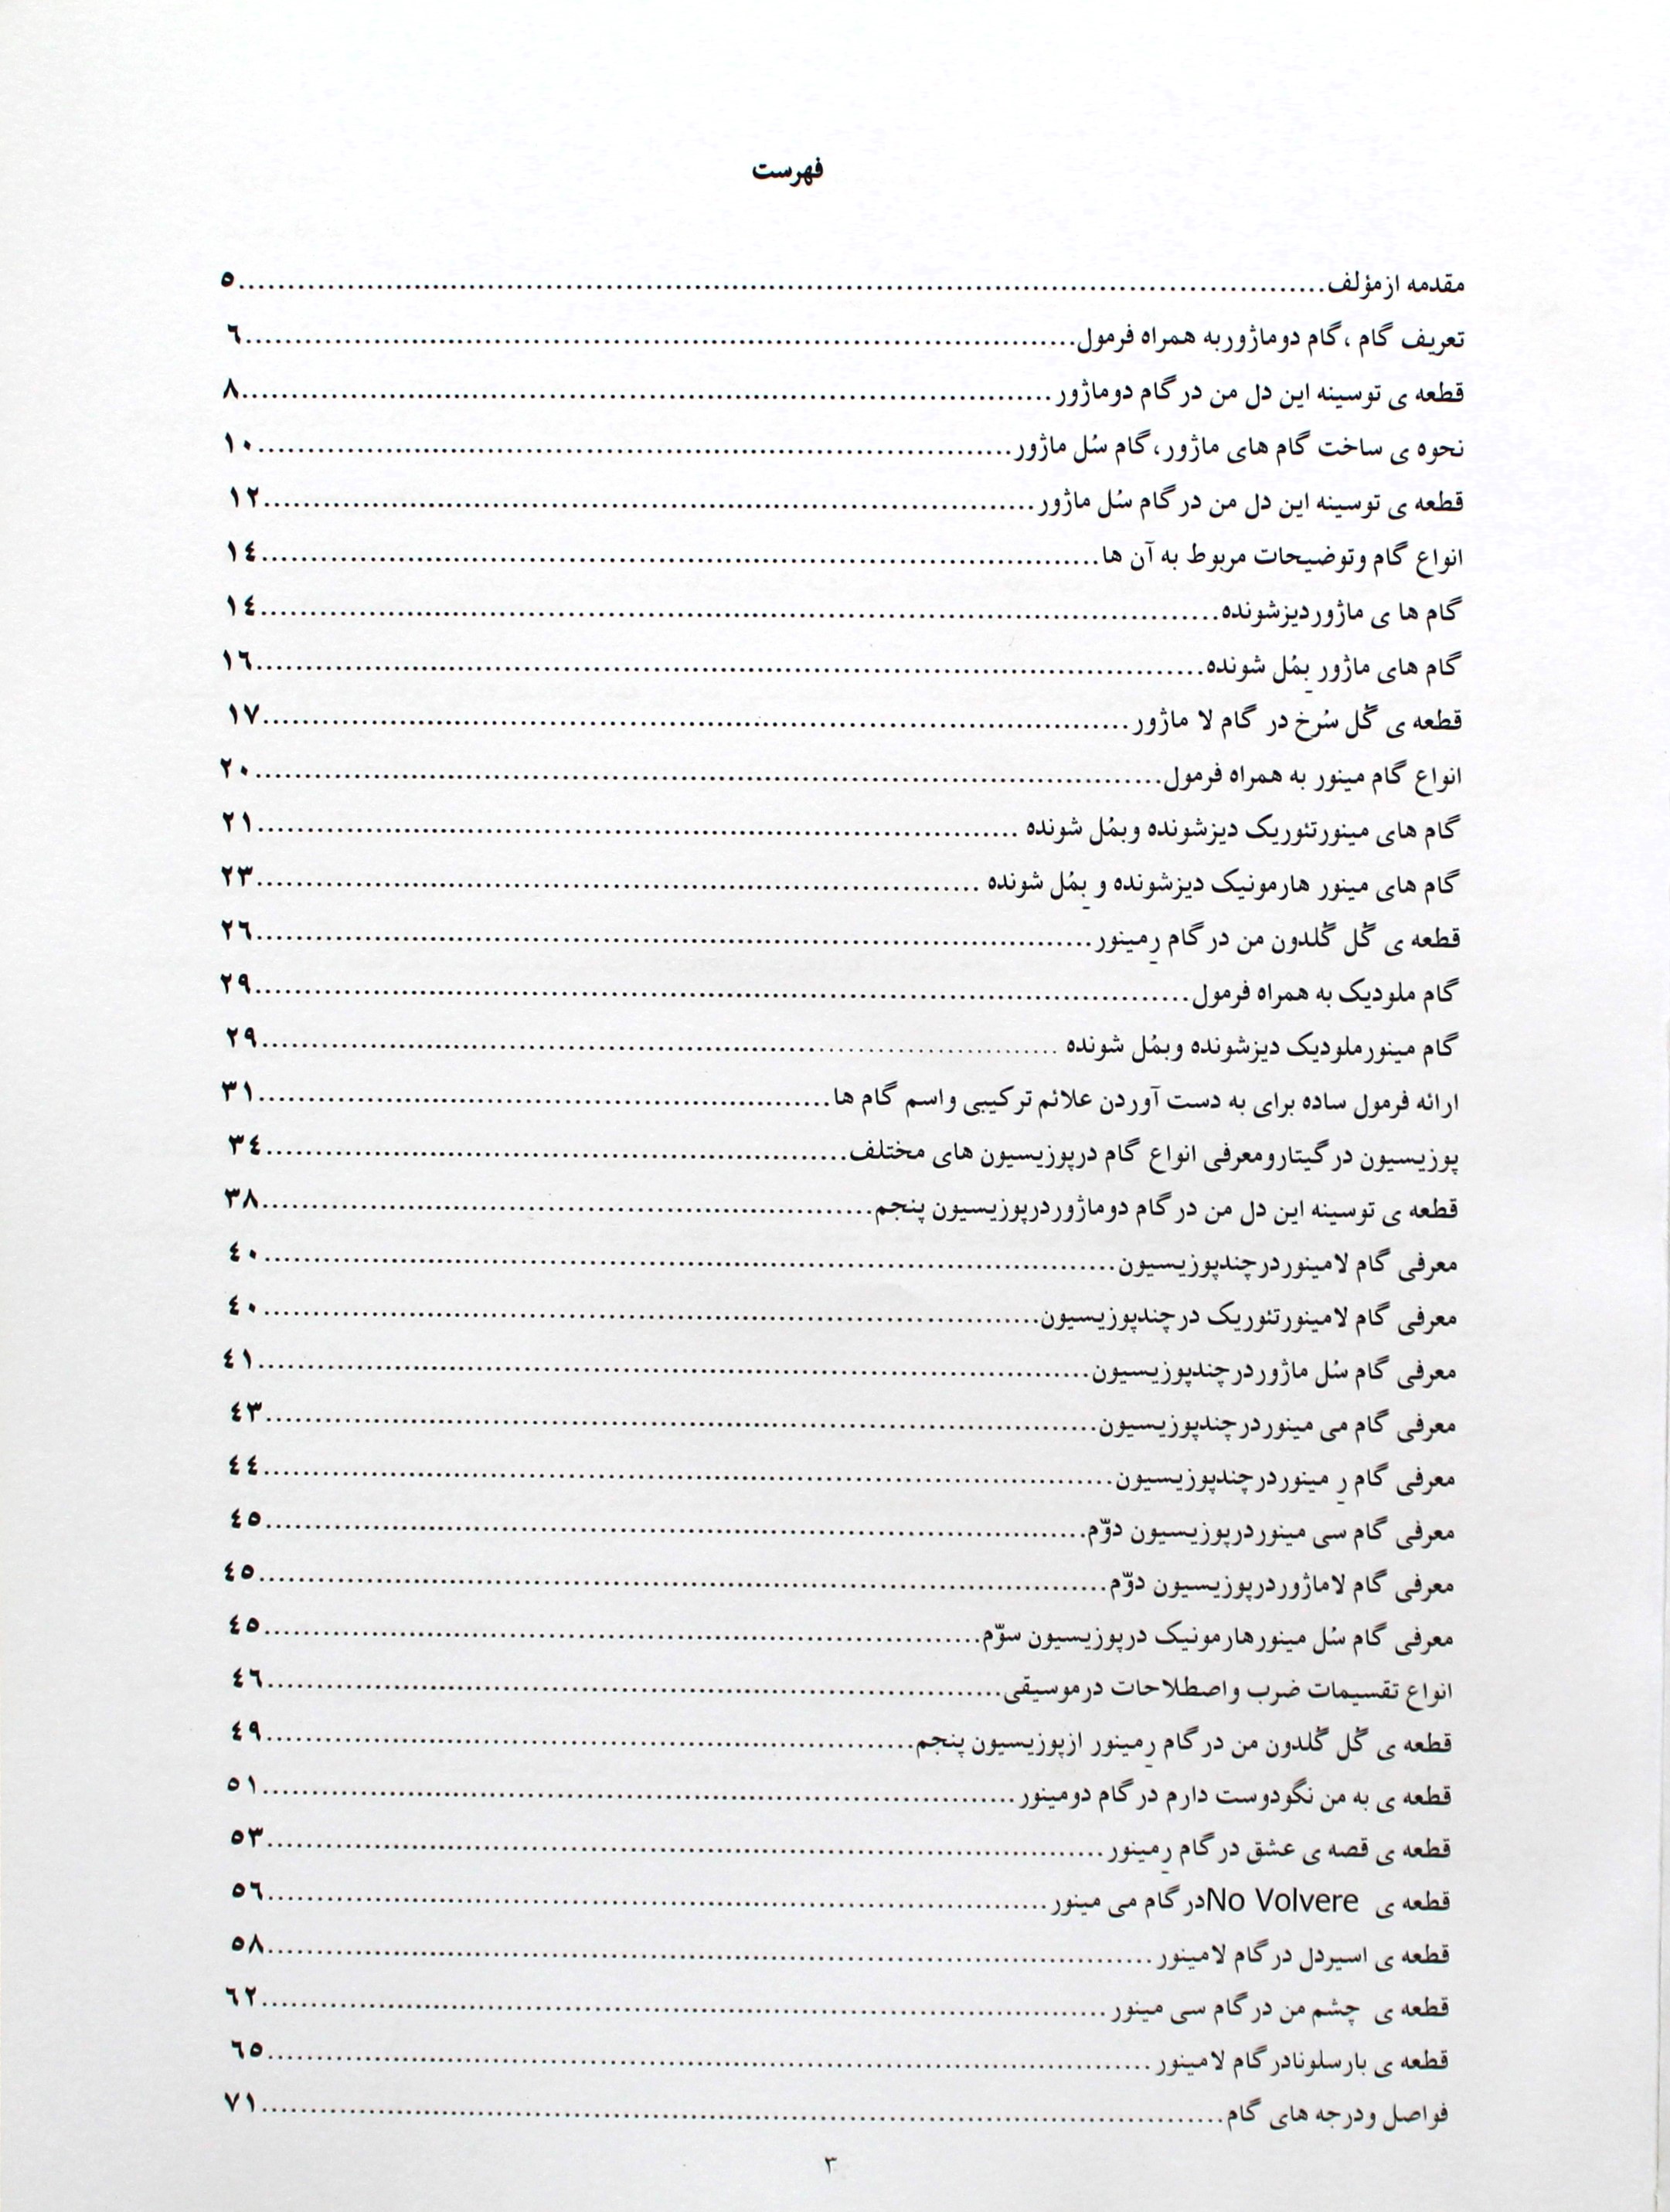 فهرست
مقدمه ازمؤلف..........۵
تعریف گام ،گام دوماژوربه همراه فرمول..........٦
قطعه ی توسینه این دل من درگام دوماژور..........۸
نحوه ی ساخت گام های ماژور،گام سُل ماژور..........۱۰
قطعه ی توسینه این دل من درگام سُل ماژور..........۱۲
انواع گام وتوضیحات مربوط به آن ها..........۱٤
گام ها ی ماژوردیزشونده..........۱٤
گام های ماژور بِمُل شونده..........۱٦
قطعه ی گُل سُرخ در گام لا ماژور..........۱۷
انواع گام مینور به همراه فرمول..........۲۰
گام های مینورتئوریک دیزشونده وبمُل شونده..........۲۱
گام های مینور هارمونیک دیزشونده و بِمُل شونده..........۲۳
قطعه ی گُل گُلدون من درگام رِمینور..........۲٦
گام ملودیک به همراه فرمول..........۲۹
گام مینورملودیک دیزشونده وبمُل شونده..........۲۹
ارائه فرمول ساده برای به دست آوردن علائم ترکیبی واسم گام ها..........۳۱
پوزیسیون درگیتارومعرفی انواع گام درپوزیسیون های مختلف..........۳٤
قطعه ی توسینه این دل من درگام دوماژوردرپوزیسیون پنجم..........۳۸
معرفی گام لامینوردرچندپوزیسیون..........٤۰
معرفی گام لامینورتئوریک درچندپوزیسیون..........٤۰
معرفی گام سُل ماژوردرچندپوزیسیون..........٤۱
معرفی گام می مینوردرچندپوزیسیون..........٤۳
معرفی گام رِ مینوردرچندپوزیسیون..........٤٤
معرفی گام سی مینوردرپوزیسیون دوّم..........٤۵
معرفی گام لاماژوردرپوزیسیون دوّم..........٤۵
معرفی گام سُل مینورهارمونیک درپوزیسیون سوّم..........٤۵
انواع تقسیمات ضرب واصطلاحات درموسیقی..........٤٦
قطعه ی گُل گُلدون من درگام رِمینور ازپوزیسیون پنجم..........٤۹
قطعه ی به من نگودوست دارم درگام دومینور..........۵۱
قطعه ی قصه ی عشق درگام رِمینور..........۵۳
قطعه ی No Volvere درگام می مینور..........۵٦
قطعه ی اسیردل درگام لامینور..........۵۸
قطعه ی چشم من درگام سی مینور..........٦۲
قطعه ی بارسلونادرگام لامینور..........٦۵
فواصل ودرجه های گام..........۷۱
۳